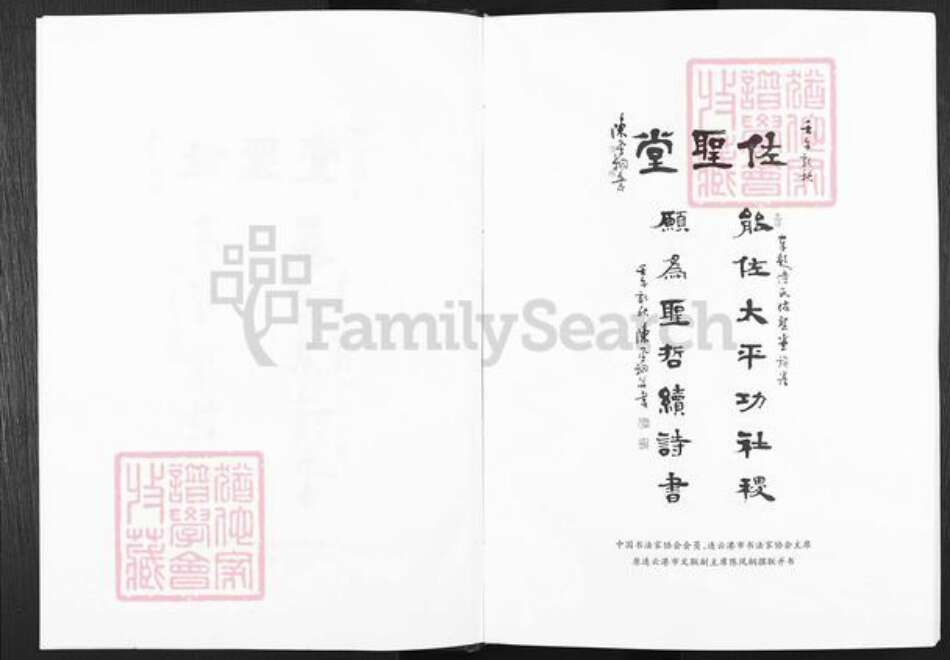 佐聖堂
壬午初秋
陳鳳桐書
能佐大平功社稷
願為聖哲續詩書
中国书法家协会会员、连云港市书法家协会主席
原连云港市文联副主席陈凤桐撰联并书
FamilySearch